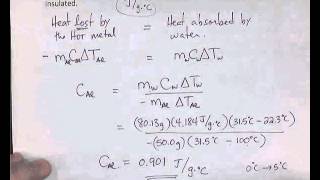 insulated.
J/g·°C
Heat lost by the Hot metal = Heat absorbed by water.
- mₐₗCₐₗΔTₐₗ = m_wC_wΔT_w
Cₐₗ = m_w C_w ΔT_w / - mₐₗ ΔTₐₗ
= (80.13g)(4.184 J/g·°C)(31.5°C - 22.3°C) / -(50.0g)(31.5°C - 100°C)
Cₐₗ = 0.901 J/g·°C
0°C → 5°C